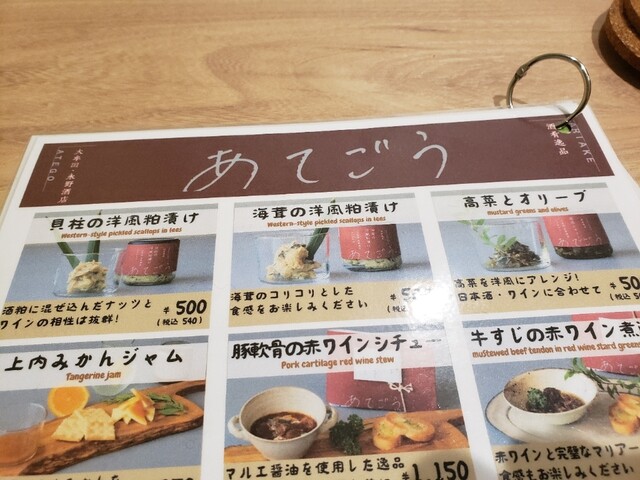 大牟田・永野酒店
ATEGO
あてごう
酒肴逸品
貝柱の洋風粕漬け
Western-style pickled scallops in lees
酒粕に混ぜ込んだナッツと
ワインの相性は抜群!
¥500
(税込 540)
海茸の洋風粕漬け
Western-style pickled scallops in lees
海茸のコリコリとした
食感をお楽しみください
高菜とオリーブ
mustard greens and olives
高菜を洋風にアレンジ!
日本酒・ワインに合わせて
上内みかんジャム
Tangerine jam
豚軟骨の赤ワインシチュー
Pork cartilage red wine stew
あてごう
マルエ醤油を使用した逸品
¥1,150
牛すじの赤ワイン煮
mustewed beef tendon in red wine stard greens
赤ワインと完璧なマリアー
食感もお楽しみ